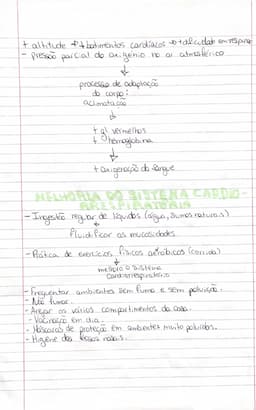 + altitude → + batimentos cardíacos → + dificuldade em respirar
- pressão parcial do oxigénio no ar atmosférico
↓
processo de adaptação
do corpo:
aclimatação
↓
+ gl. vermelhos
+ hemoglobina
↓
+ oxigenação do sangue
MELHORIA DO SISTEMA CARDIO-
RRESPIRATÓRIO
- Ingestão regular de líquidos (água, sumos naturais)
↓
Fluidificar as mucosidades
- Prática de exercícios físicos aeróbicos (corrida)
↓
melhora o sistema
cardiorrespiratório
- Frequentar ambientes sem fumo e sem poluição.
- Não fumar.
- Arejar os vários compartimentos da casa.
- Vacinação em dia.
- Máscaras de proteção em ambientes muito poluídos.
- Higiene das fossas nasais.